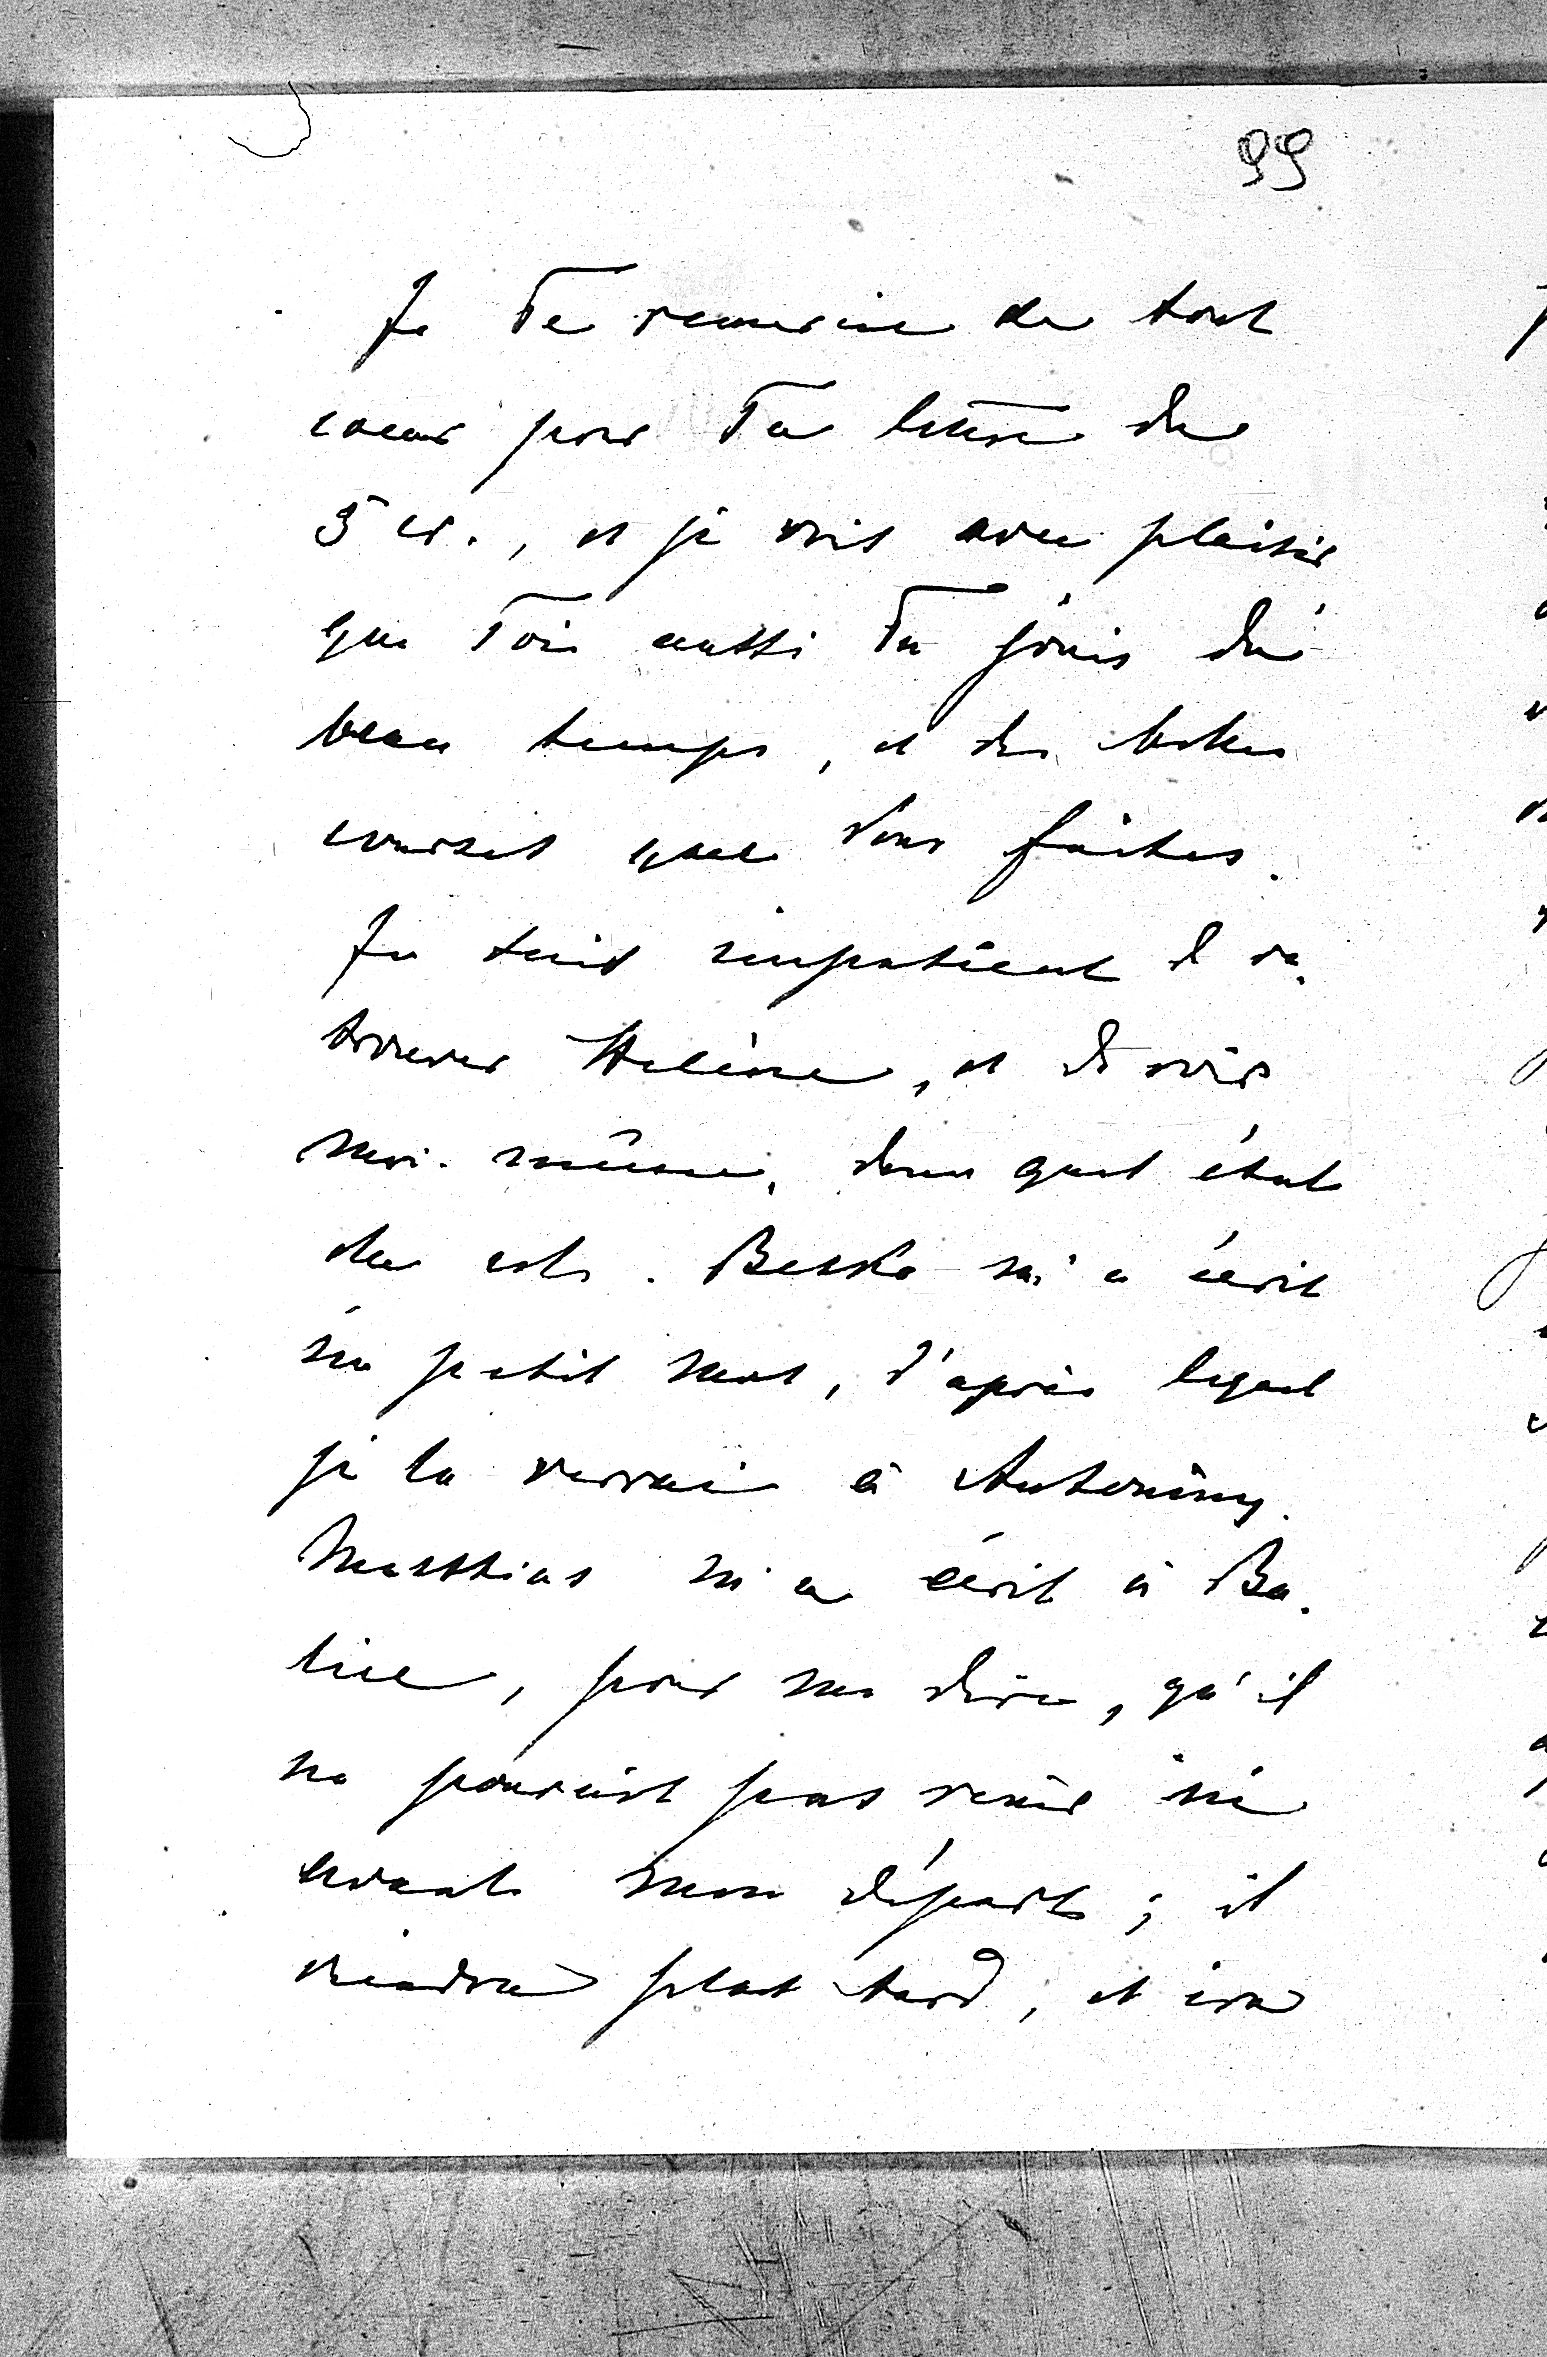 99
Je Te remercie de tout
coeur pour Ta lettre du
5 cr., et je vois avec plaisir
que Toi aussi Tu jouis du
beau temps, et des belles
courses que Vous faites.
Je suis impatient d re-
trouver Hélène, et de voir
moi-même, dans quel état
elle est. Beska m'a écrit
un petit mot, d'après lequel
je la verrai à Antoniny.
Matthias m'a écrit à Ba-
lice, pour me dire, qu'il
ne pouvait pas venir ici
avant mon départ; il
viendra plus tard, et ira